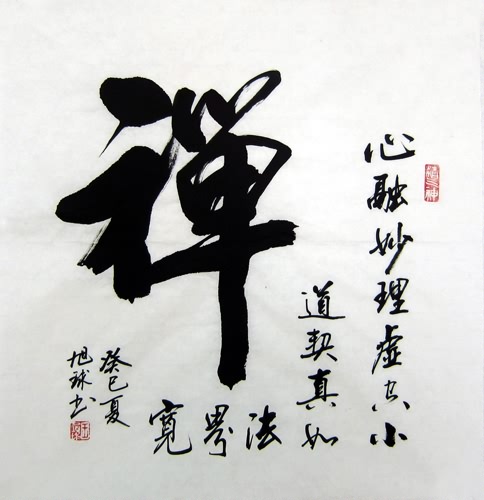 禪
心融妙理虚空小
道契真如
法界寬
癸巳夏
旭球书